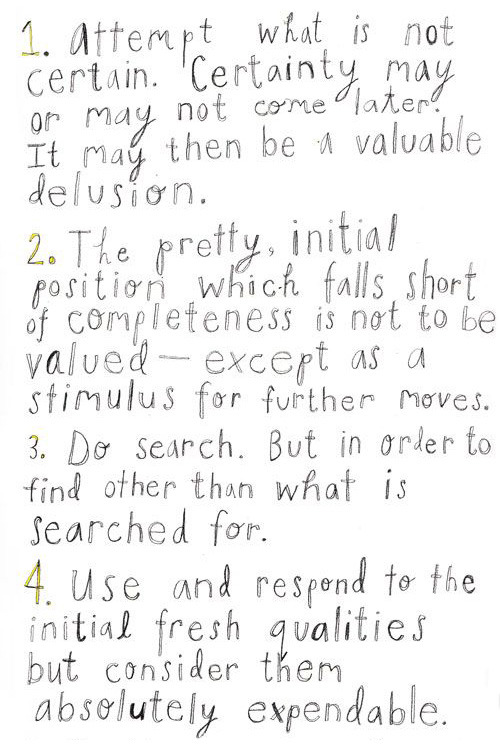 1. Attempt what is not
certain. Certainty may
or may not come later.
It may then be a valuable
delusion.
2. The pretty, initial
position which falls short
of completeness is not to be
valued — except as a
stimulus for further moves.
3. Do search. But in order to
find other than what is
searched for.
4. Use and respond to the
initial fresh qualities
but consider them
absolutely expendable.